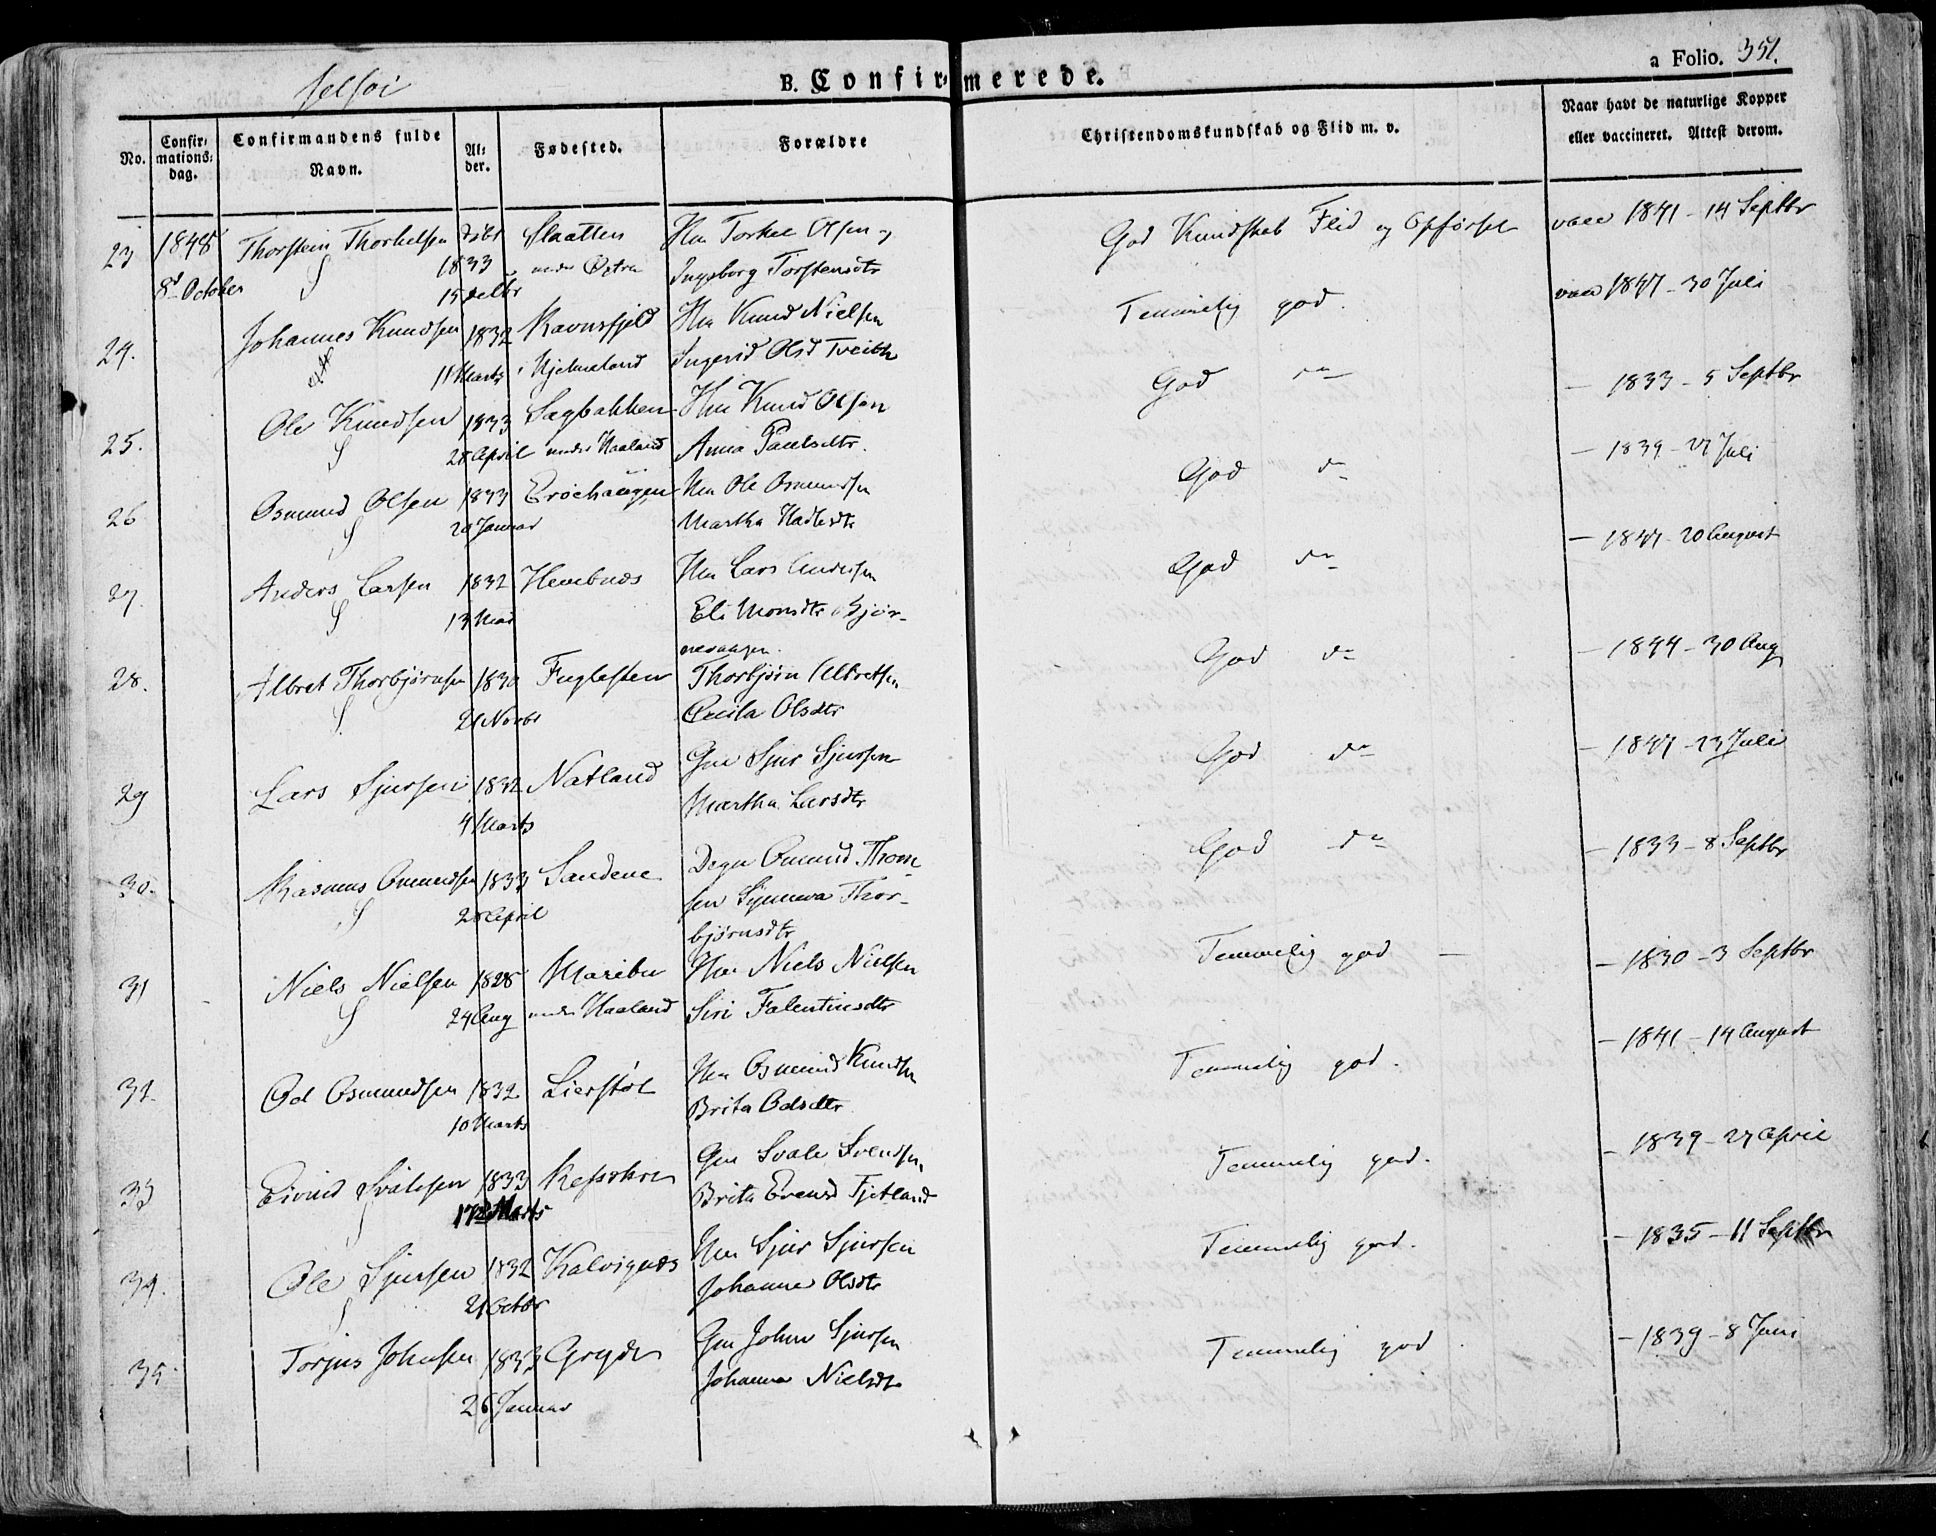 selsøi
B. Confirmerede.
a Folio. 351.
No.
Confirmations-dag.
Confirmandens fulde Navn.
Alder.
Fødested.
Forældre
Christendomskundskab og Flid m. v.
Naar havt de naturlige Kopper eller vaccineret. Attest derom.
23 1848 Thorstein Thorkelsen født Slaatten Hm Torkel Olsen og God Kundskab Flid og Opførsel vacc 1841 - 14 Septbr
8d October S 1833 under Østra Ingeborg Torstensdtr
15 Decbr
24. Johannes Knudsen 1832 Ravnsfjeld Hm Knud Nielsen Temmelig god. vacc 1847 - 30 Juli
11 Marts i Hjelmeland Ingerid Olsd Tveite
25. Ole Knudsen 1833 Sagbakken Hm Knud Olsen God do - 1833 - 5 Septbr
S 28 April under Haaland Anna Paulsdtr.
26 Osmund Olsen 1833 Hm Ole Osmundsn God do - 1839 - 27 Juli
S 20 Januar Martha Hadlesdtr
27. Anders Larsen 1832 Hembnæs Hm Lars Andersen God do - 1847 - 20 August
S 13 Mai Eli Monsdtr Bjør-
nevaagen.
28. Albret Thorbjørnsen 1830 Fuglesten Thorbjørn Albretsen God do - 1844 - 30 Aug
S 21 Novbr Cecila Olsdtr
29 Lars Sjursen 1832 Natland Gm Sjur Sjursen God do - 1847 - 23 Juli
4 Marts Martha Larsdtr
30. Rasmus Omundsen 1833 Sandene Omund Thom- God do - 1833 - 8 Septbr
S 28 April sen Synneva Thor-
bjørnsdtr
31 Niels Nielsen 1828 Maribu Hm Niels Nielsen Temmelig god - - 1830 - 3 Septbr
S 24 Aug under Haaland Siri Falentinsdtr
32. Od Osmundsen 1832 Lierstøl Hm Osmund Knudsn Temmelig god. - 1841 - 14 August
10 Marts Brita Odsdtr
33 Eivind Svalesen 1833 Gm Svale Svendsen Temmelig god. - 1839 - 27 April
S Marts Brita Evensd Fjetland
34. Ole Sjursen 1832 Kalvignæs Hm Sjur Sjursen Temmelig god. - 1835 - 11 Septbr
S 21 Octbr Johanna Olsdtr
35 Torjus Johnsen 1833 Gryde Gm John Sjursen Temmelig god - 1839 - 8 Juni
26 Januar Johanna Nielsdtr